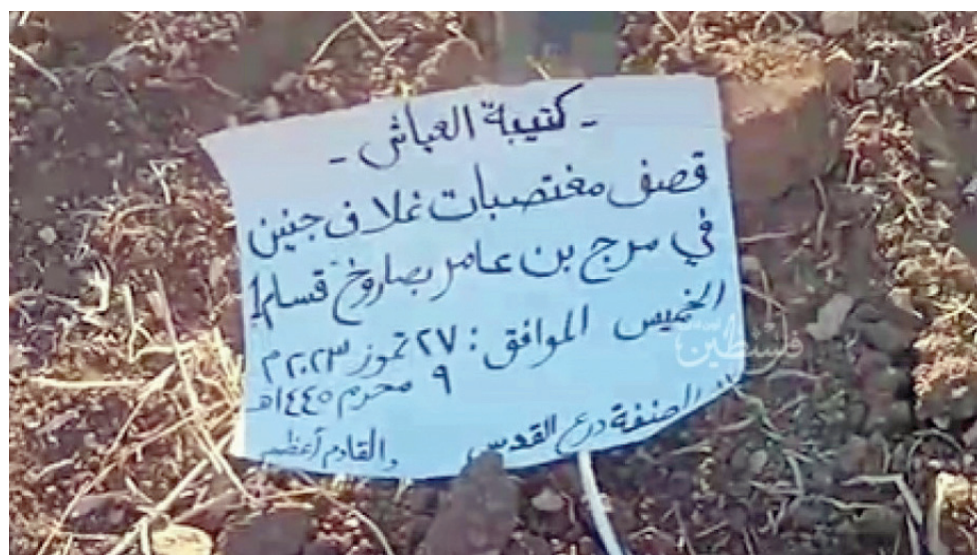 - كتيبة العياش -
قصف مغتصبات غلاف جنين
في مرج بن عامر بصاروخ قسام1
الخميس الموافق : ٢٧ تموز ٢٠٢٣ م
٩ محرم ١٤٤٥هـ
الضفة درع القدس
والقادم أعظم
فلسطين